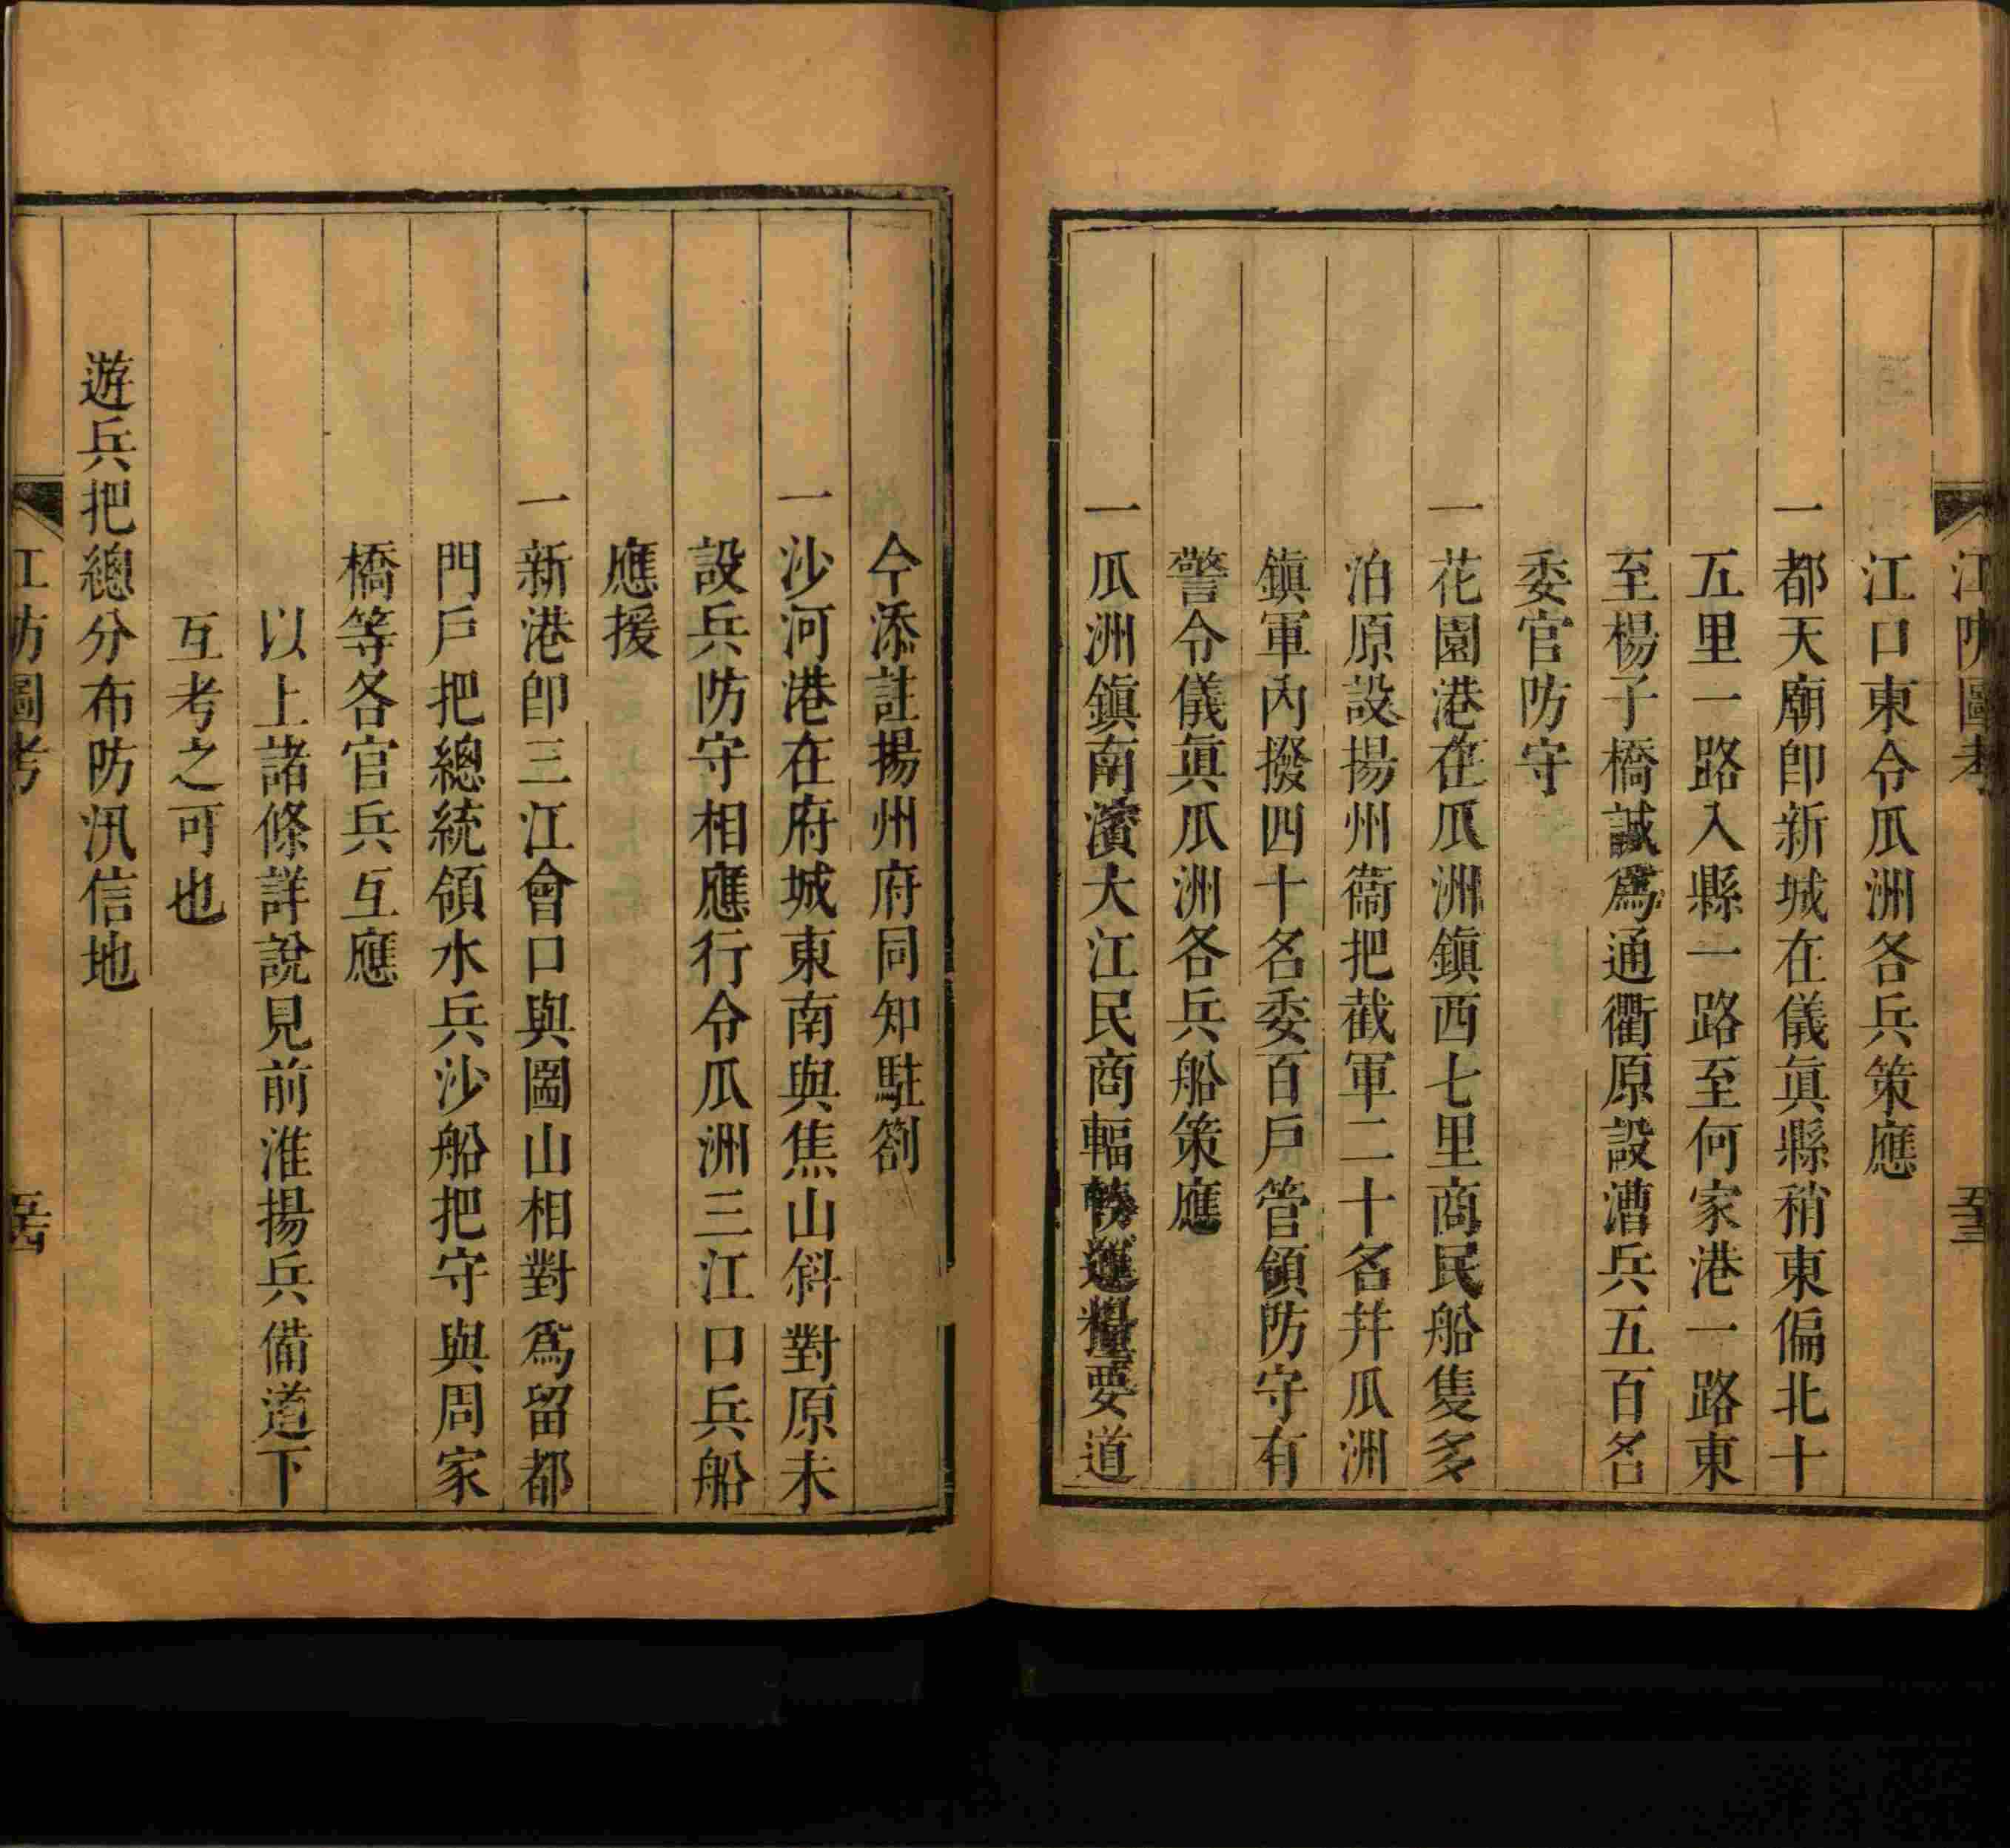 江防圖考
五三
江口東令瓜洲各兵策應
一都天廟卽新城在儀眞縣稍東偏北十
五里一路入縣一路至何家港一路東
至楊子橋誠爲通衢原設漕兵五百名
委官防守
一花園港在瓜洲鎭西七里商民船隻多
泊原設揚州衞把截軍二十名幷瓜洲
鎭軍內撥四十名委百戶管領防守有
警令儀眞瓜洲各兵船策應
一瓜洲鎭南濱大江民商輻輳運糧要道
今添註揚州府同知駐劄
一沙河港在府城東南與焦山斜對原未
設兵防守相應行令瓜洲三江口兵船
應援
一新港卽三江會口與圌山相對爲留都
門戶把總統領水兵沙船把守與周家
橋等各官兵互應
以上諸條詳說見前淮揚兵備道下
互考之可也
遊兵把總分布防汛信地
江防圖考
五四